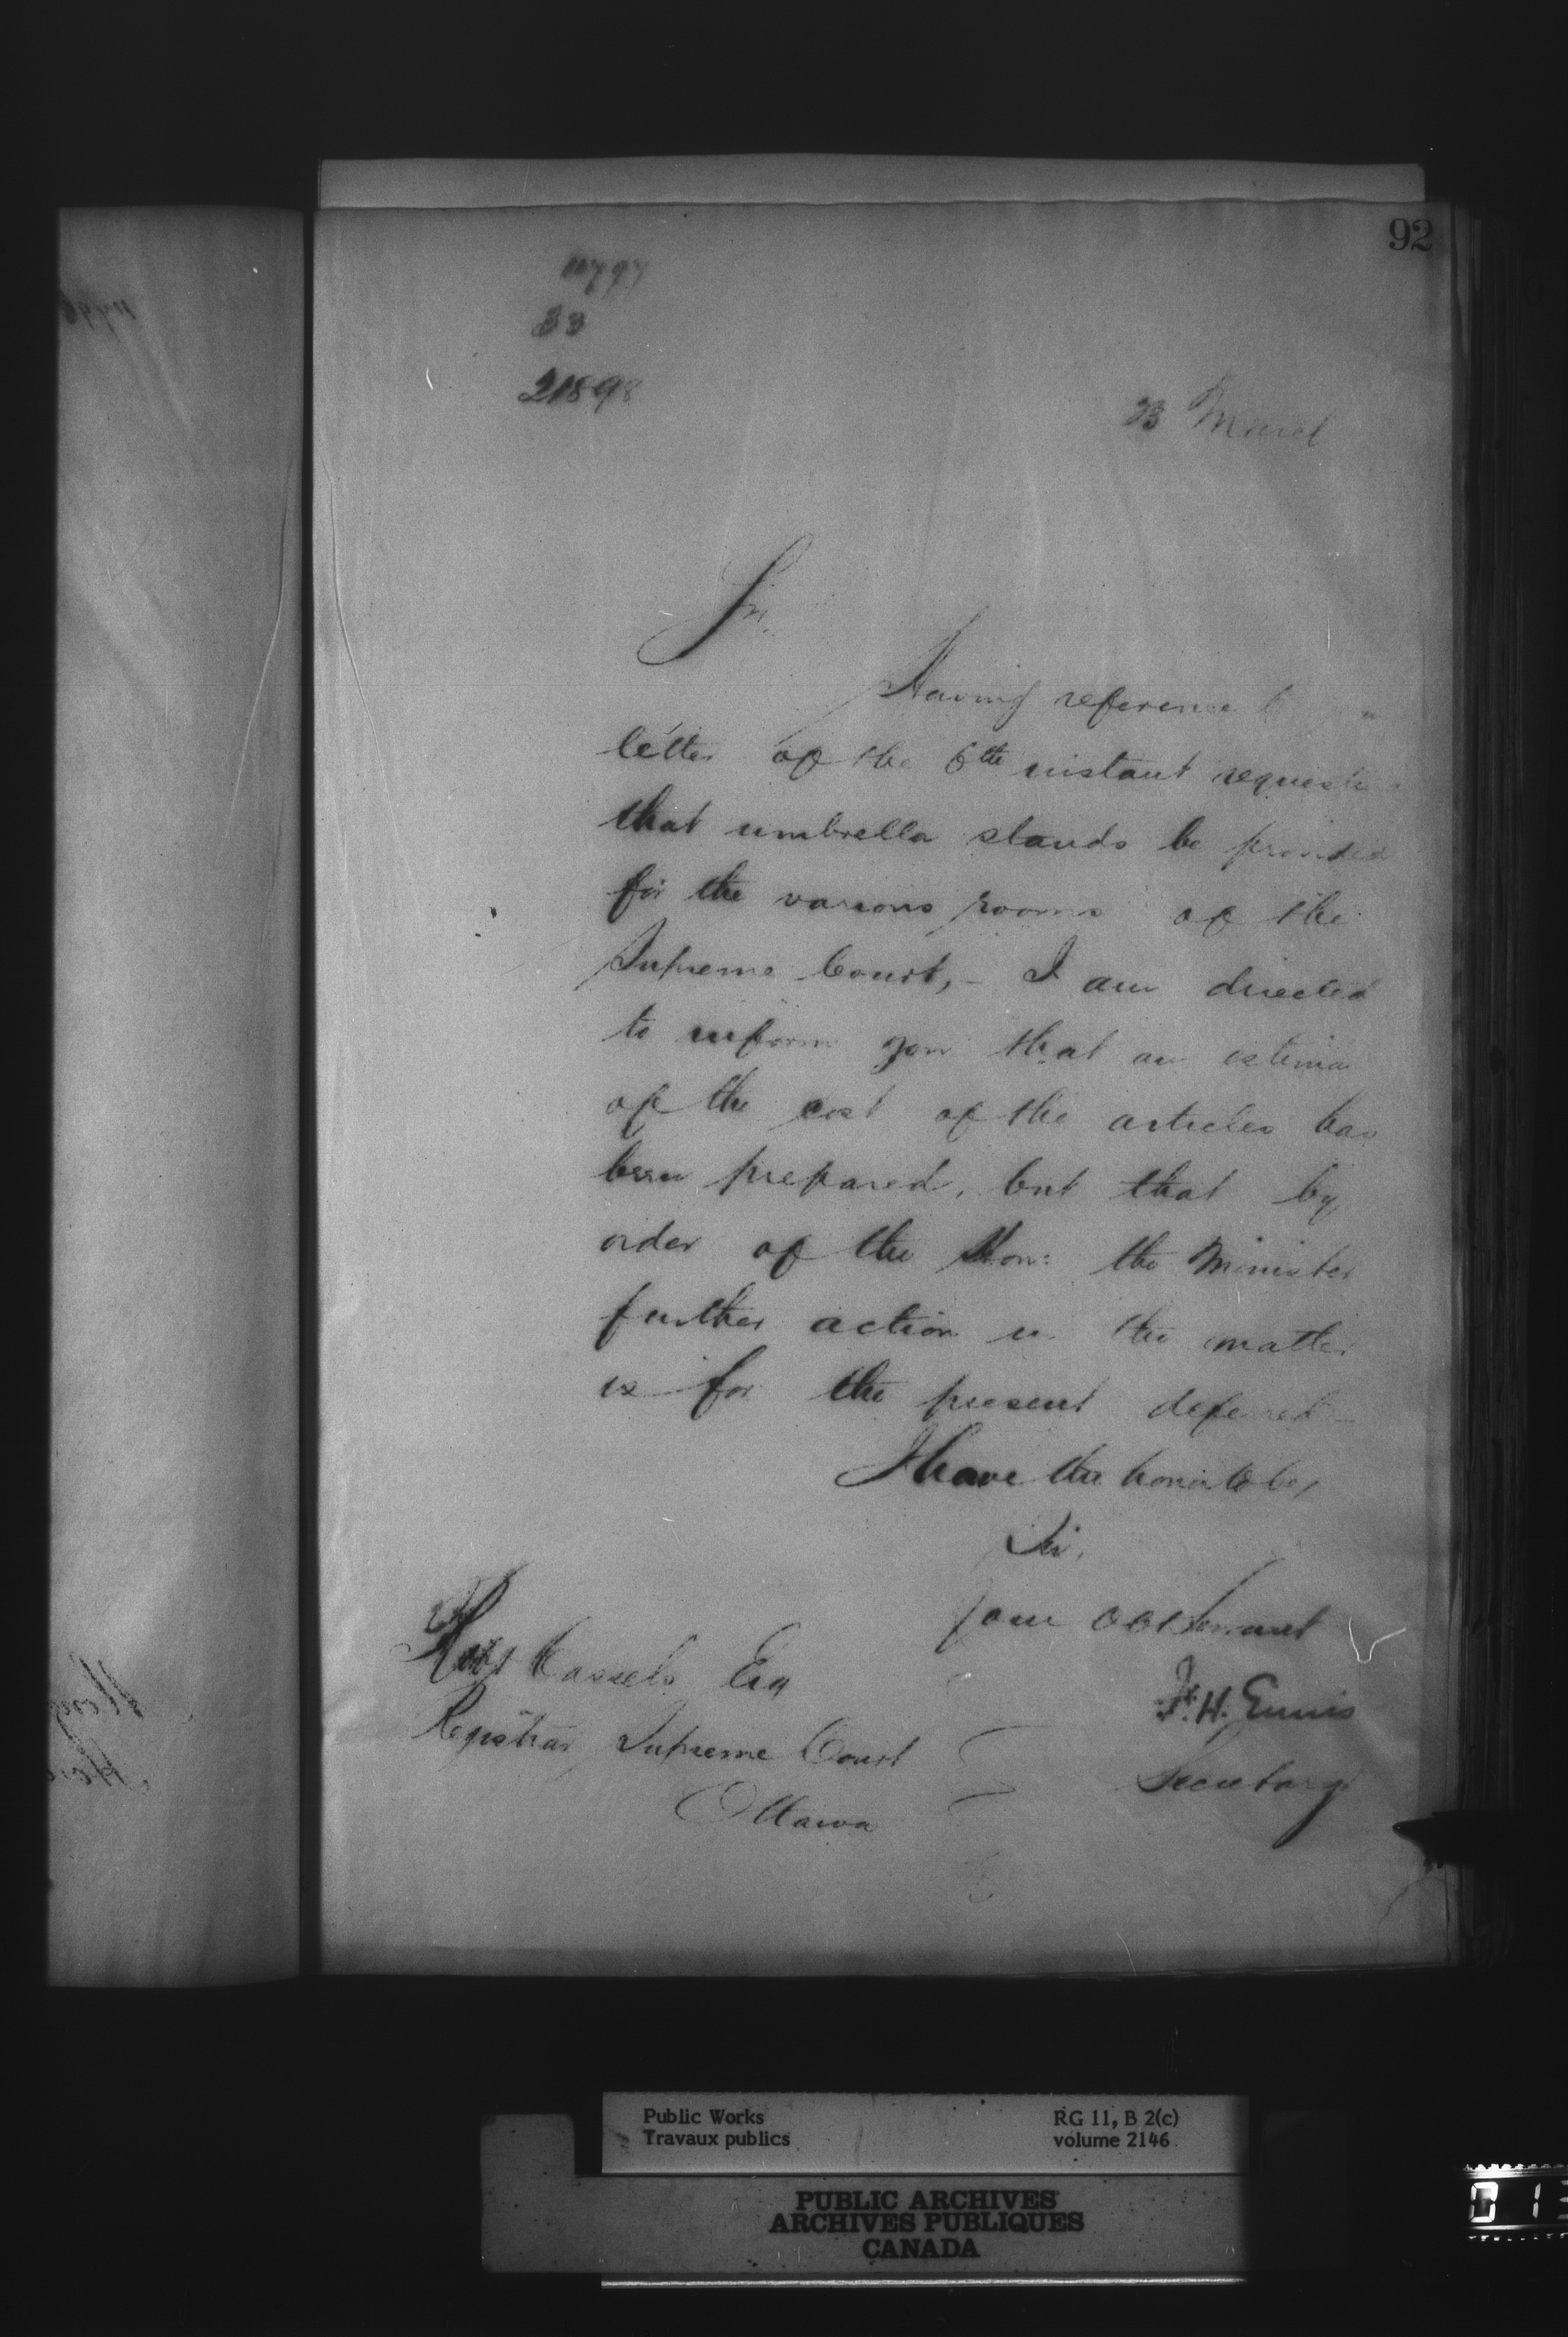 92
33
21898
23 March
Sir,
Having reference
letter of the 6th instant
that umbrella stands be provided
for the various rooms of the
Supreme Court, - I am directed
to inform you that an estima
of the cost of the articles has
been prepared, but that by
order of the Hon: the Minister
further action in the matter
is for the present deferred -
I have the honor to be,
Sir,
Your Obt Servant
Robt Cassels Esq
F. H. Ennis
Registrar Supreme Court
Secretary
Ottawa
Public Works
Travaux publics
RG 11, B 2(c)
volume 2146
PUBLIC ARCHIVES
ARCHIVES PUBLIQUES
CANADA